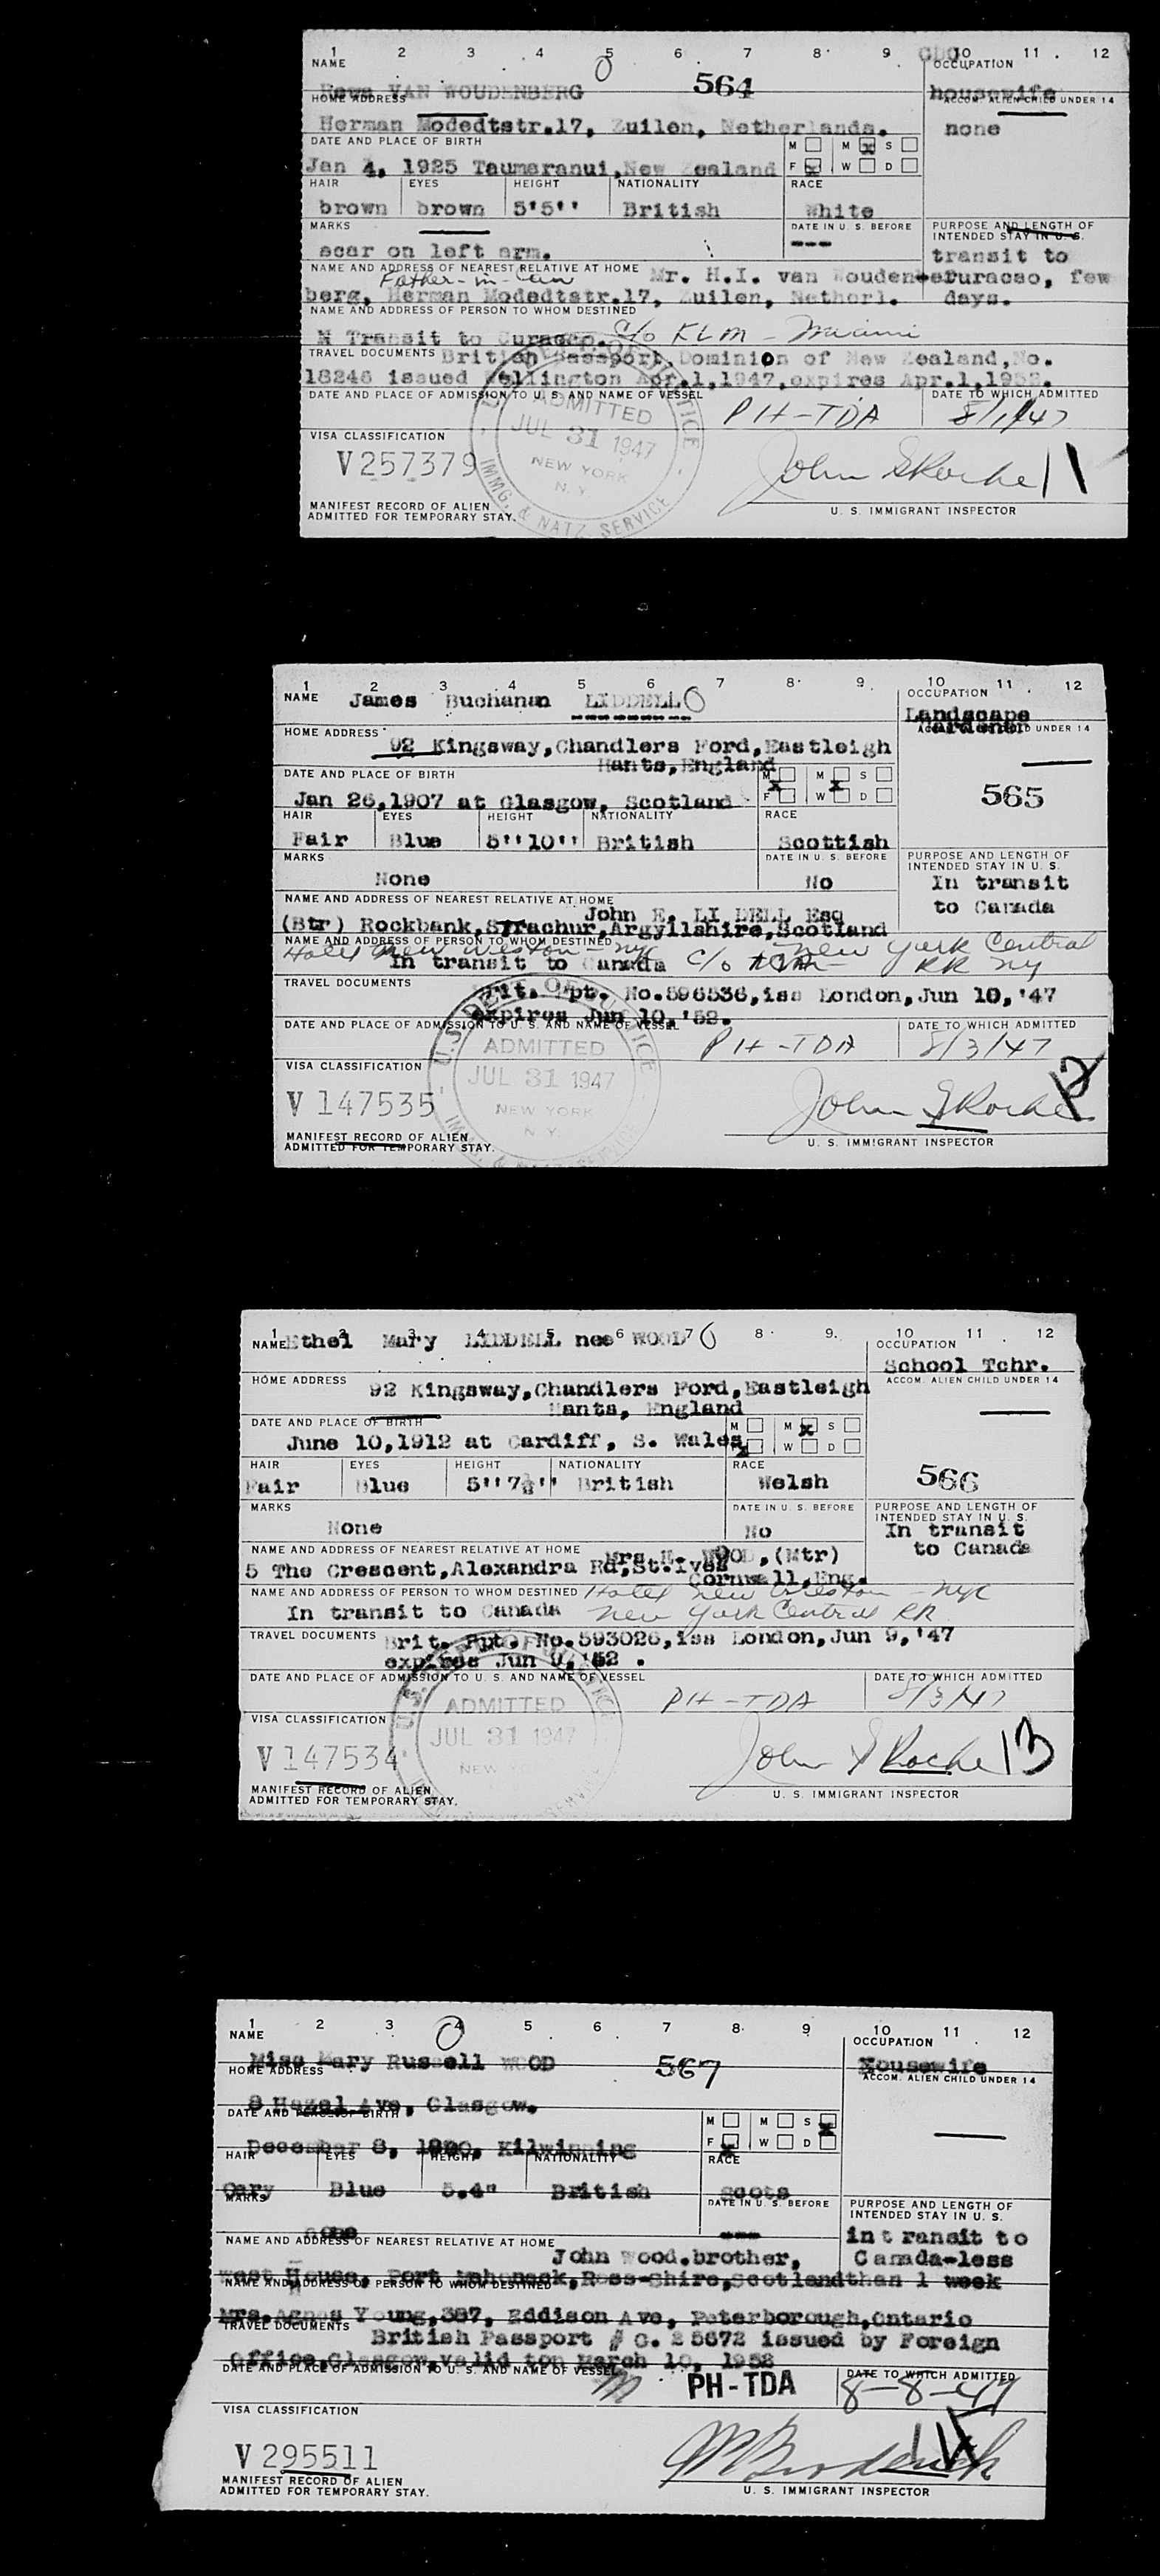 1 2 3 4 5 6 7 8 9 10 11 12
NAME
OCCUPATION
564
VAN WOUDENBERG
housewife
HOME ADDRESS
ACCOM. ALIEN CHILD UNDER 14
Herman Modedtstr.17, Zuilen, Netherlands.
none
DATE AND PLACE OF BIRTH
M M S
Jan 4, 1925 Taumaranui, New Zealand
F W D
HAIR EYES HEIGHT NATIONALITY RACE
brown brown 5'5'' British White
MARKS
DATE IN U. S. BEFORE
PURPOSE AND LENGTH OF INTENDED STAY IN U. S.
scar on left arm.
---
transit to
NAME AND ADDRESS OF NEAREST RELATIVE AT HOME
Father-in-law
Mr. H.I. van Wouden-
Curacao, few
berg, Herman Modedtstr.17, Zuilen, Netherl.
days.
NAME AND ADDRESS OF PERSON TO WHOM DESTINED
Transit to Curacao. c/o KLM - Miami
TRAVEL DOCUMENTS British Passport, Dominion of New Zealand, No.
18246 issued Wellington Apr.1,1947, expires Apr.1,1952.
DATE AND PLACE OF ADMISSION TO U. S. AND NAME OF VESSEL
DATE TO WHICH ADMITTED
PH-TDA 8/1/47
ADMITTED
JUL 31 1947
NEW YORK
N. Y.
IMMG. & NATZ. SERVICE
VISA CLASSIFICATION
V257379
John S Roche 11
MANIFEST RECORD OF ALIEN
ADMITTED FOR TEMPORARY STAY.
U. S. IMMIGRANT INSPECTOR
1 2 3 4 5 6 7 8 9 10 11 12
NAME James Buchanan LIDDELL
OCCUPATION
Landscape
Gardener
HOME ADDRESS
UNDER 14
92 Kingsway, Chandlers Ford, Eastleigh
Hants, England
DATE AND PLACE OF BIRTH
M M S
Jan 26,1907 at Glasgow, Scotland
F W D
565
HAIR EYES HEIGHT NATIONALITY RACE
Fair Blue 5''10'' British Scottish
MARKS
DATE IN U. S. BEFORE
PURPOSE AND LENGTH OF INTENDED STAY IN U. S.
None
No
In transit
to Canada
NAME AND ADDRESS OF NEAREST RELATIVE AT HOME
John E. LIDDELL Esq
(Btr) Rockbank, Strachur, Argyllshire, Scotland
NAME AND ADDRESS OF PERSON TO WHOM DESTINED
Hotel New Weston - NYC
In transit to Canada c/o New York Central
RR NY
TRAVEL DOCUMENTS
Brit. Ppt. No.596536, iss London, Jun 10,'47
expires Jun 10,'52.
DATE AND PLACE OF ADMISSION TO U. S. AND NAME OF VESSEL
DATE TO WHICH ADMITTED
PH-TDA 8/3/47
ADMITTED
JUL 31 1947
NEW YORK
N. Y.
VISA CLASSIFICATION
V 147535
John S Roche 12
MANIFEST RECORD OF ALIEN
ADMITTED FOR TEMPORARY STAY.
U. S. IMMIGRANT INSPECTOR
1 2 3 4 5 6 7 8 9 10 11 12
NAME Ethel Mary LIDDELL nee WOOD
OCCUPATION
School Tchr.
HOME ADDRESS
ACCOM. ALIEN CHILD UNDER 14
92 Kingsway, Chandlers Ford, Eastleigh
Hants, England
DATE AND PLACE OF BIRTH
M M S
June 10,1912 at Cardiff, S. Wales
W D
566
HAIR EYES HEIGHT NATIONALITY RACE
Fair Blue 5''7½'' British Welsh
MARKS
DATE IN U. S. BEFORE
PURPOSE AND LENGTH OF INTENDED STAY IN U. S.
None
No
In transit
to Canada
NAME AND ADDRESS OF NEAREST RELATIVE AT HOME
Mrs WOOD, (Mtr)
5 The Crescent, Alexandra Rd, St. Ives
Cornwall, Eng.
NAME AND ADDRESS OF PERSON TO WHOM DESTINED Hotel New Weston - NYC
In transit to Canada New York Central RR
TRAVEL DOCUMENTS
Brit. Ppt. No.593026, iss London, Jun 9,'47
expires Jun 9,'52.
DATE AND PLACE OF ADMISSION TO U. S. AND NAME OF VESSEL
DATE TO WHICH ADMITTED
PH-TDA 8/3/47
ADMITTED
JUL 31 1947
NEW
VISA CLASSIFICATION
V 147534
John S Roche 13
MANIFEST RECORD OF ALIEN
ADMITTED FOR TEMPORARY STAY.
U. S. IMMIGRANT INSPECTOR
1 2 3 4 5 6 7 8 9 10 11 12
NAME
OCCUPATION
Miss Mary Russell WOOD
567
Housewife
HOME ADDRESS
ACCOM. ALIEN CHILD UNDER 14
8 Hazel Ave, Glasgow.
DATE AND PLACE OF BIRTH
M M S
F W D
December 8, Kilwinning
HAIR EYES HEIGHT NATIONALITY RACE
Gary Blue 5.4" British Scots
MARKS
DATE IN U. S. BEFORE
PURPOSE AND LENGTH OF INTENDED STAY IN U. S.
none
---
in transit to
NAME AND ADDRESS OF NEAREST RELATIVE AT HOME
John Wood. brother,
Canada-less
West House, Port Ross-Shire, Scotland
than 1 week
NAME AND ADDRESS OF PERSON TO WHOM DESTINED
Mrs. Agnes Young, 387, Eddison Ave, Peterborough, Ontario
TRAVEL DOCUMENTS
British Passport # C. 25672 issued by Foreign
Office, Glasgow, valid to March 10, 1952
DATE AND PLACE OF ADMISSION TO U. S. AND NAME OF VESSEL
DATE TO WHICH ADMITTED
PH-TDA 8-8-47
VISA CLASSIFICATION
V 295511
MANIFEST RECORD OF ALIEN
ADMITTED FOR TEMPORARY STAY.
U. S. IMMIGRANT INSPECTOR